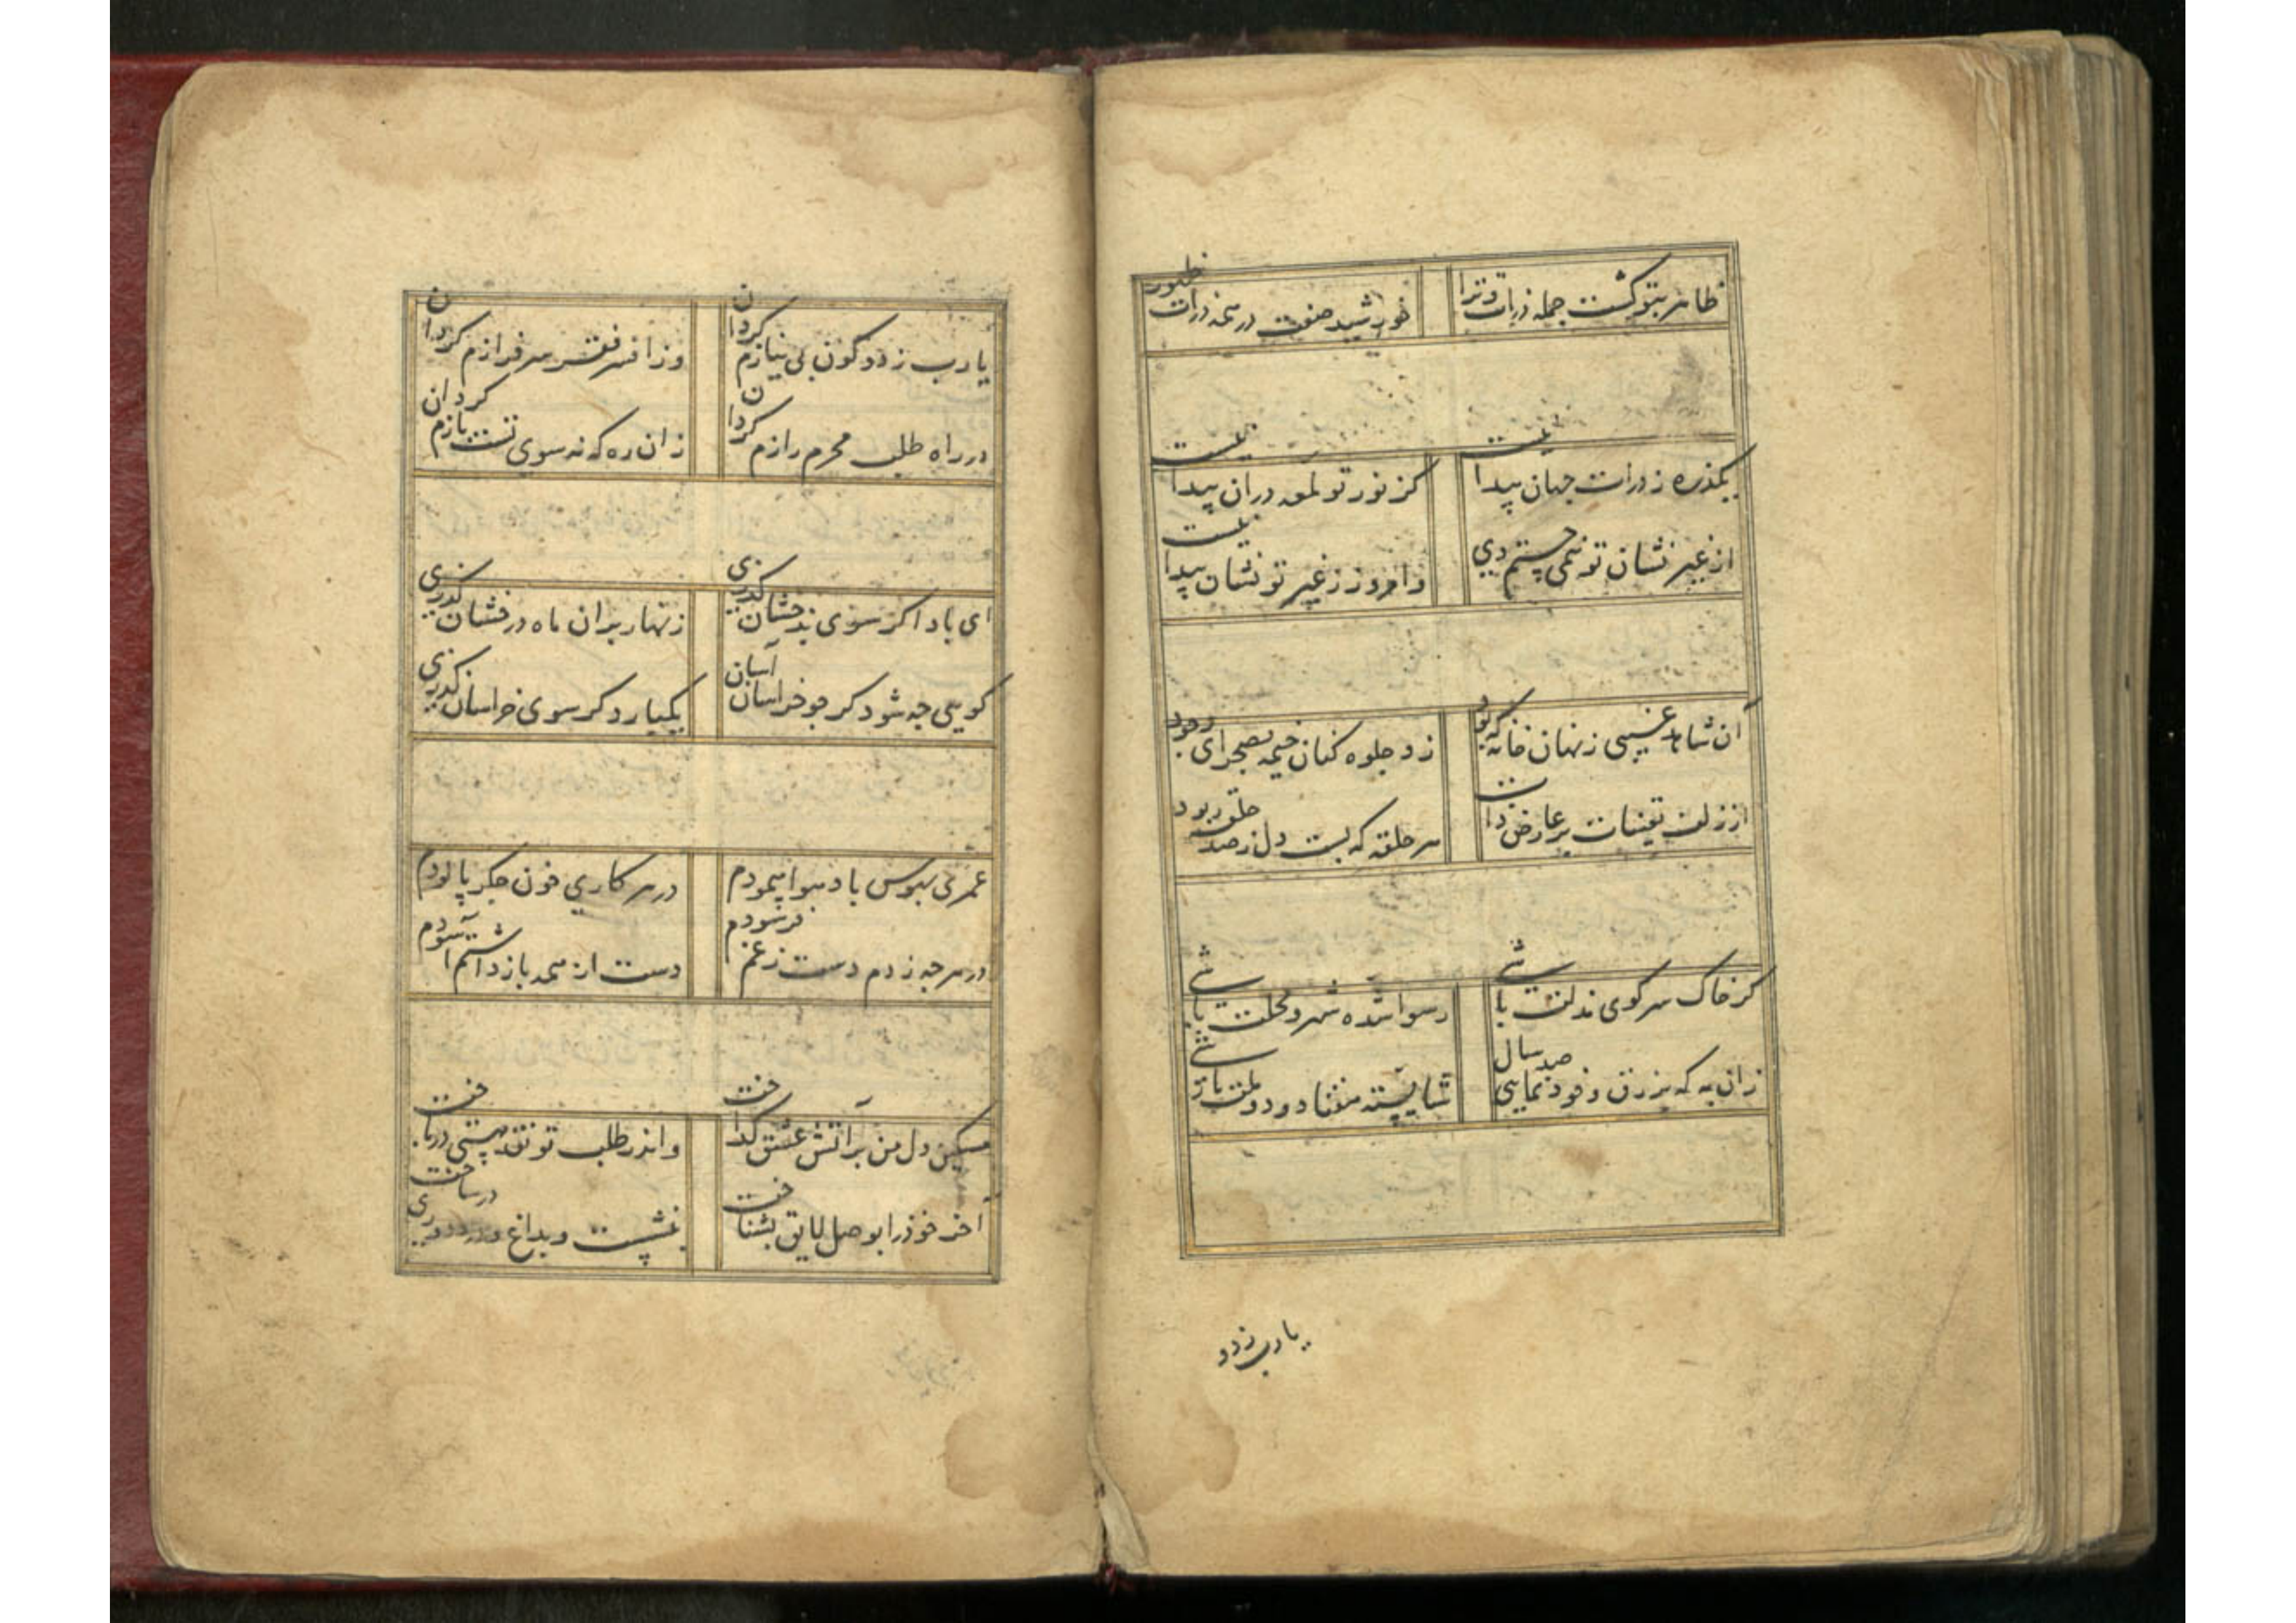 ظاهر بتو گشت جمله ذرات و ترا
خورشید صفت در همه ذرات ظهور
یکذره ز ذرات جهان پیدا نیست
کز نور تو لمعه دران پیدا نیست
از غیر نشان تو همی جستم دی
و امروز ز غیر تو نشان پیدا نیست
آن شاهد غیبی ز نهان خانه که بود
زد جلوه کنان خیمه بصحرای وجود
از زلف تعینات بر عارض ذات
هر حلقه که بست دل ز صد حلقه ربود
گر خاک سر کوی مذلت باشی
رسوا شده شهر و محلت باشی
زان به که بزرق و خود نمایی صد سال
شایسته هفتاد و دو ملت باشی
یا رب ز دو
یا رب ز دو کون بی نیازم گردان
وز افسر فقر سرفرازم گردان
در راه طلب محرم رازم گردان
زان ره که نه سوی تست بازم گردان
ای باد اگر سوی بدخشان گذری
زنهار بران ماه درفشان گذری
گویی چه شود گر چو خراسان آسان
یکبار دگر سوی خراسان گذری
عمری بهوس باد هوا پیمودم
در هر کاری خون جگر پالودم
در هرچه زدم دست ز غم فرسودم
دست از همه باز داشتم آسودم
مسکین دل من بر آتش عشق گداخت
و اندر طلب تو نقد هستی درباخت
آخر خود را بوصل لایق بشناخت
بنشست و بداغ و درد دوری درساخت